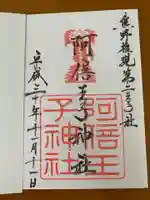 熊野権現第二三号社
阿倍王子神社
阿倍王
子神社
平成三十年十一月十一日